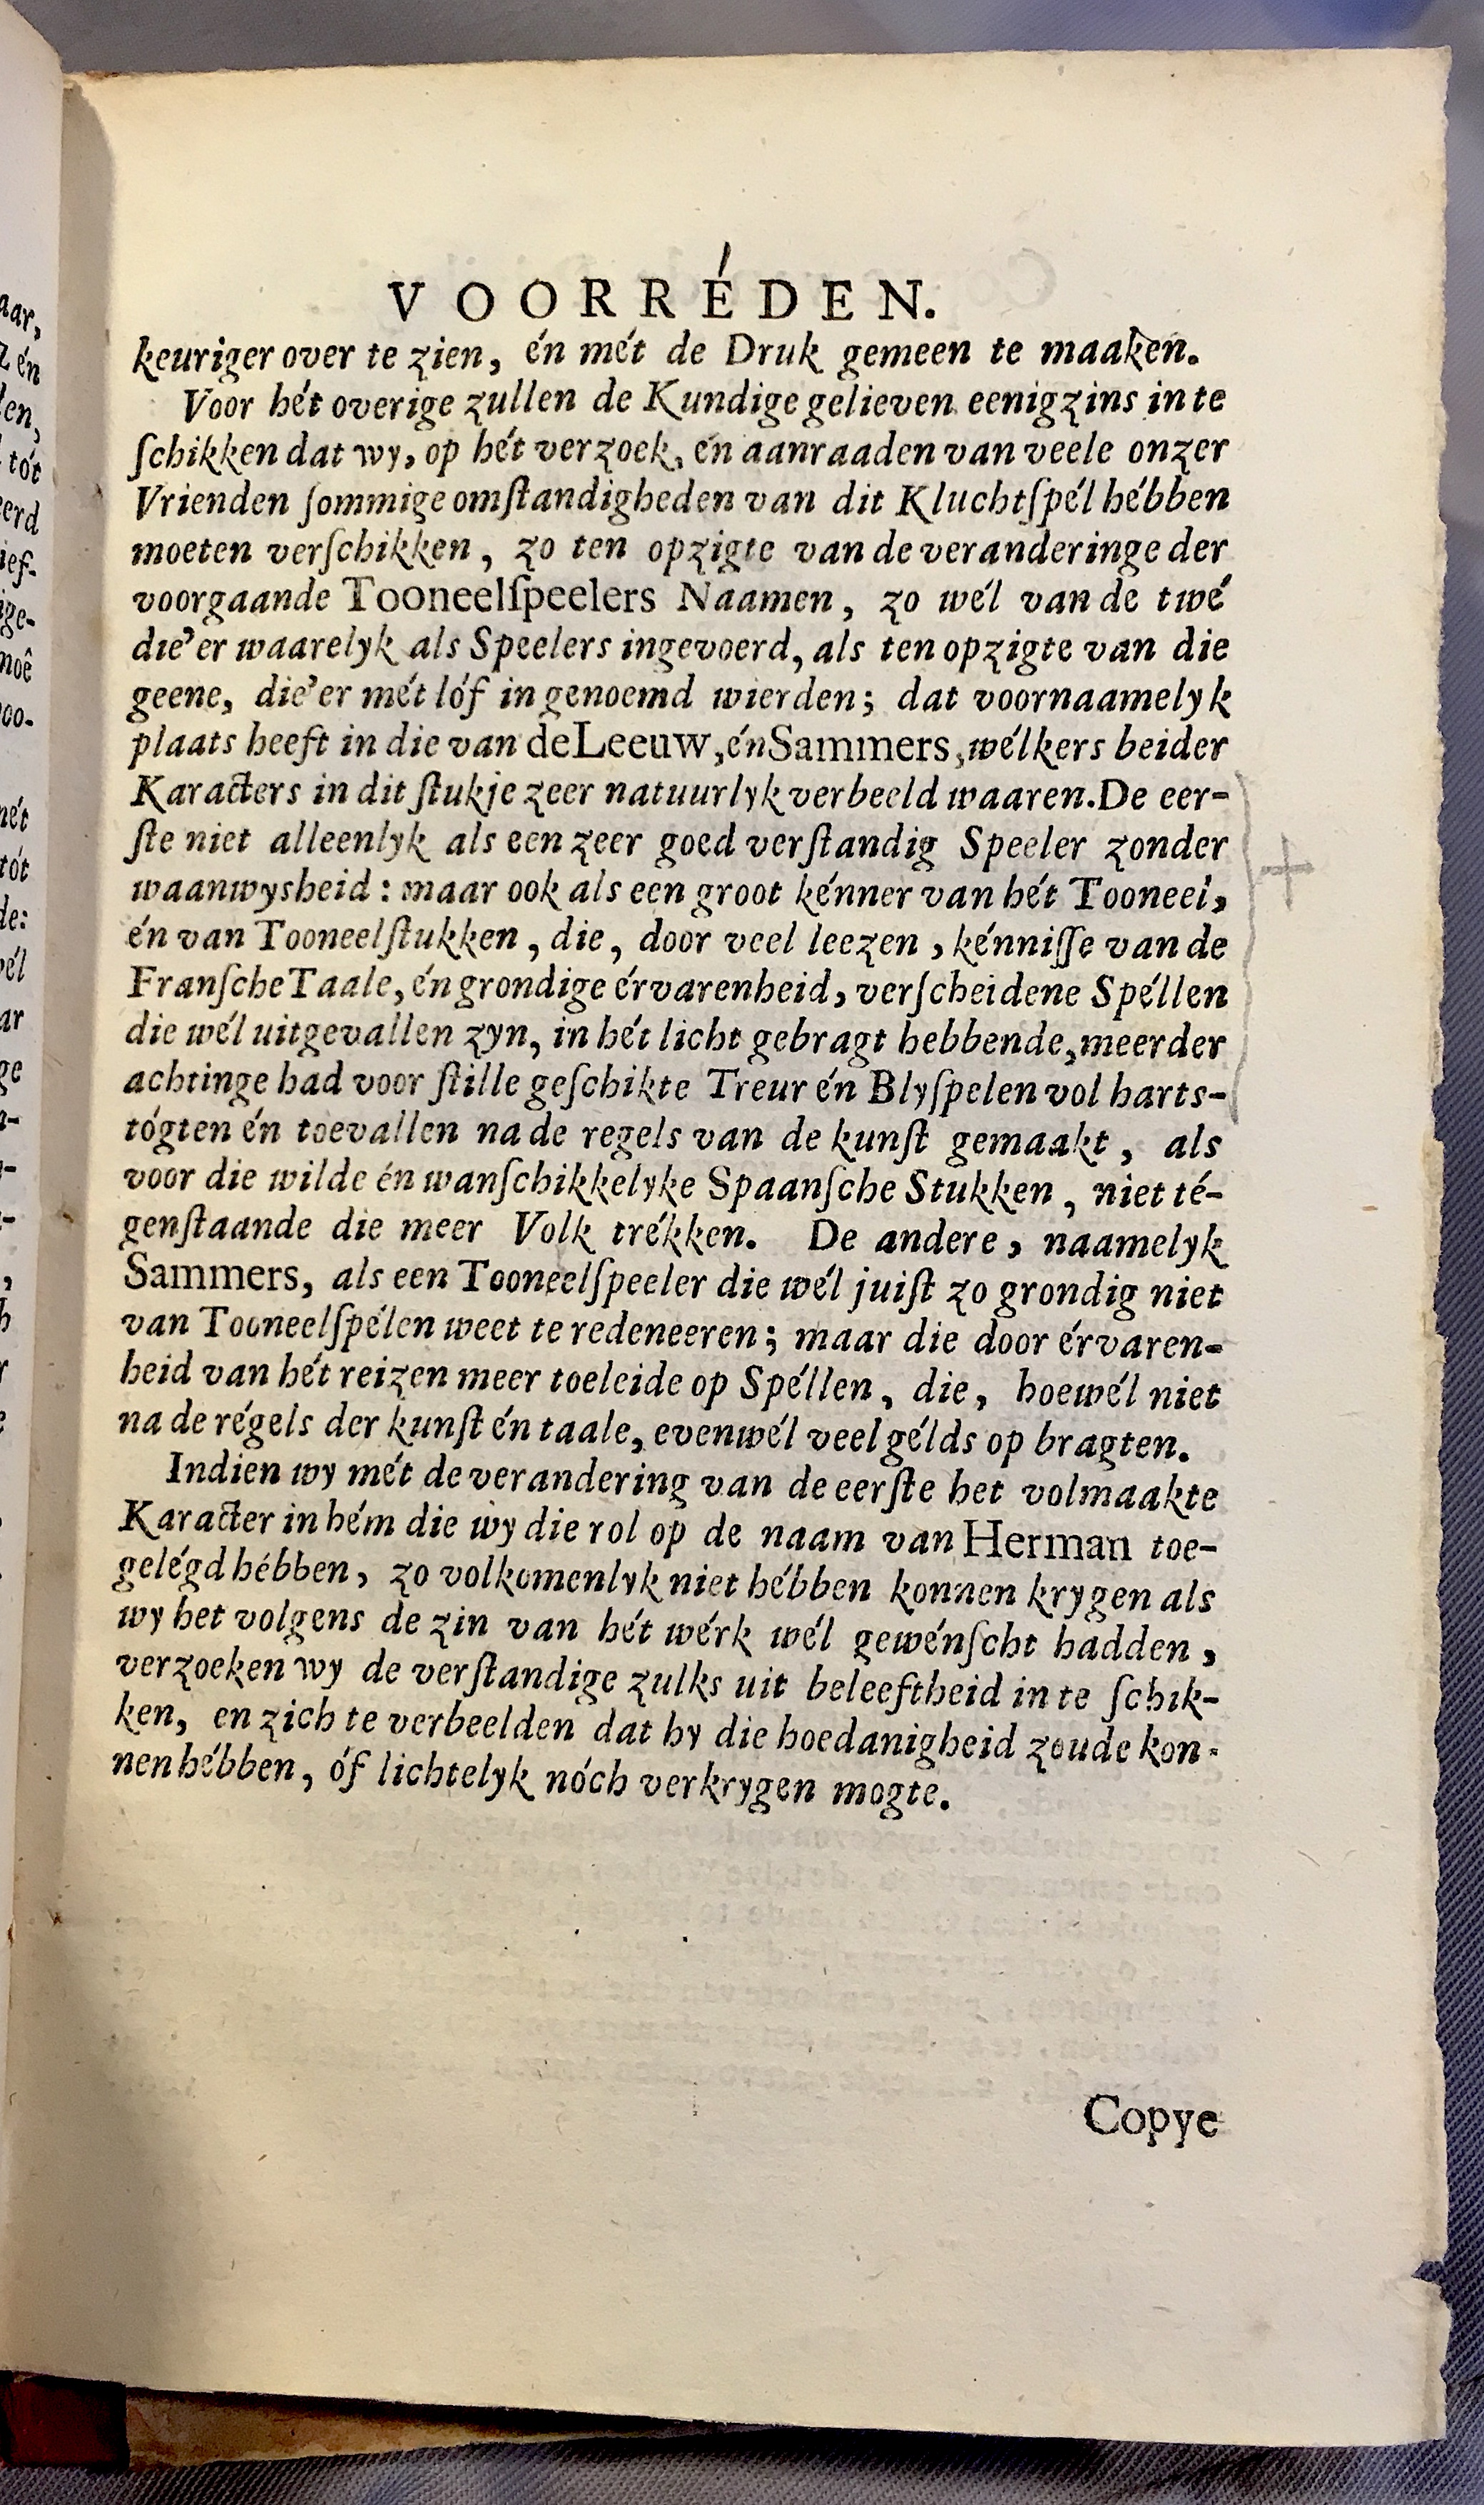 VOORRÉDEN.
keuriger over te zien, én mét de Druk gemeen te maaken.
Voor hét overige zullen de Kundige gelieven eenigzins in te
ſchikken dat wy, op hét verzoek, én aanraaden van veele onzer
Vrienden ſommige omſtandigheden van dit Kluchtſpél hébben
moeten verſchikken, zo ten opzigte van de veranderinge der
voorgaande Tooneelſpeelers Naamen, zo wél van de twé
die'er waarelyk als Speelers ingevoerd, als ten opzigte van die
geene, die'er mét lóf in genoemd wierden; dat voornaamelyk
plaats heeft in die van de Leeuw, én Sammers, wélkers beider
Karacters in dit ſtukje zeer natuurlyk verbeeld waaren. De eer-
ſte niet alleenlyk als een zeer goed verſtandig Speeler zonder
waanwysheid: maar ook als een groot kénner van hét Tooneel,
én van Tooneelſtukken, die, door veel leezen, kénniſſe van de
Franſche Taale, én grondige érvarenheid, verſcheidene Spéllen
die wél uitgevallen zyn, in hét licht gebragt hebbende, meerder
achtinge had voor ſtille geſchikte Treur én Blyſpelen vol harts-
tógten én toevallen na de regels van de kunſt gemaakt, als
voor die wilde én wanſchikkelyke Spaanſche Stukken, niet té-
genſtaande die meer Volk trékken. De andere, naamelyk
Sammers, als een Tooneelſpeeler die wél juiſt zo grondig niet
van Tooneelſpélen weet te redeneeren; maar die door érvaren-
heid van hét reizen meer toeleide op Spéllen, die, hoewél niet
na de régels der kunſt én taale, evenwél veel gélds op bragten.
Indien wy mét de verandering van de eerſte het volmaakte
Karacter in hém die wy die rol op de naam van Herman toe-
gelégd hébben, zo volkomenlyk niet hébben konnen krygen als
wy het volgens de zin van hét wérk wél gewénſcht hadden,
verzoeken wy de verſtandige zulks uit beleeftheid in te ſchik-
ken, en zich te verbeelden dat hy die hoedanigheid zoude kon-
nen hébben, óf lichtelyk nóch verkrygen mogte.
Copye